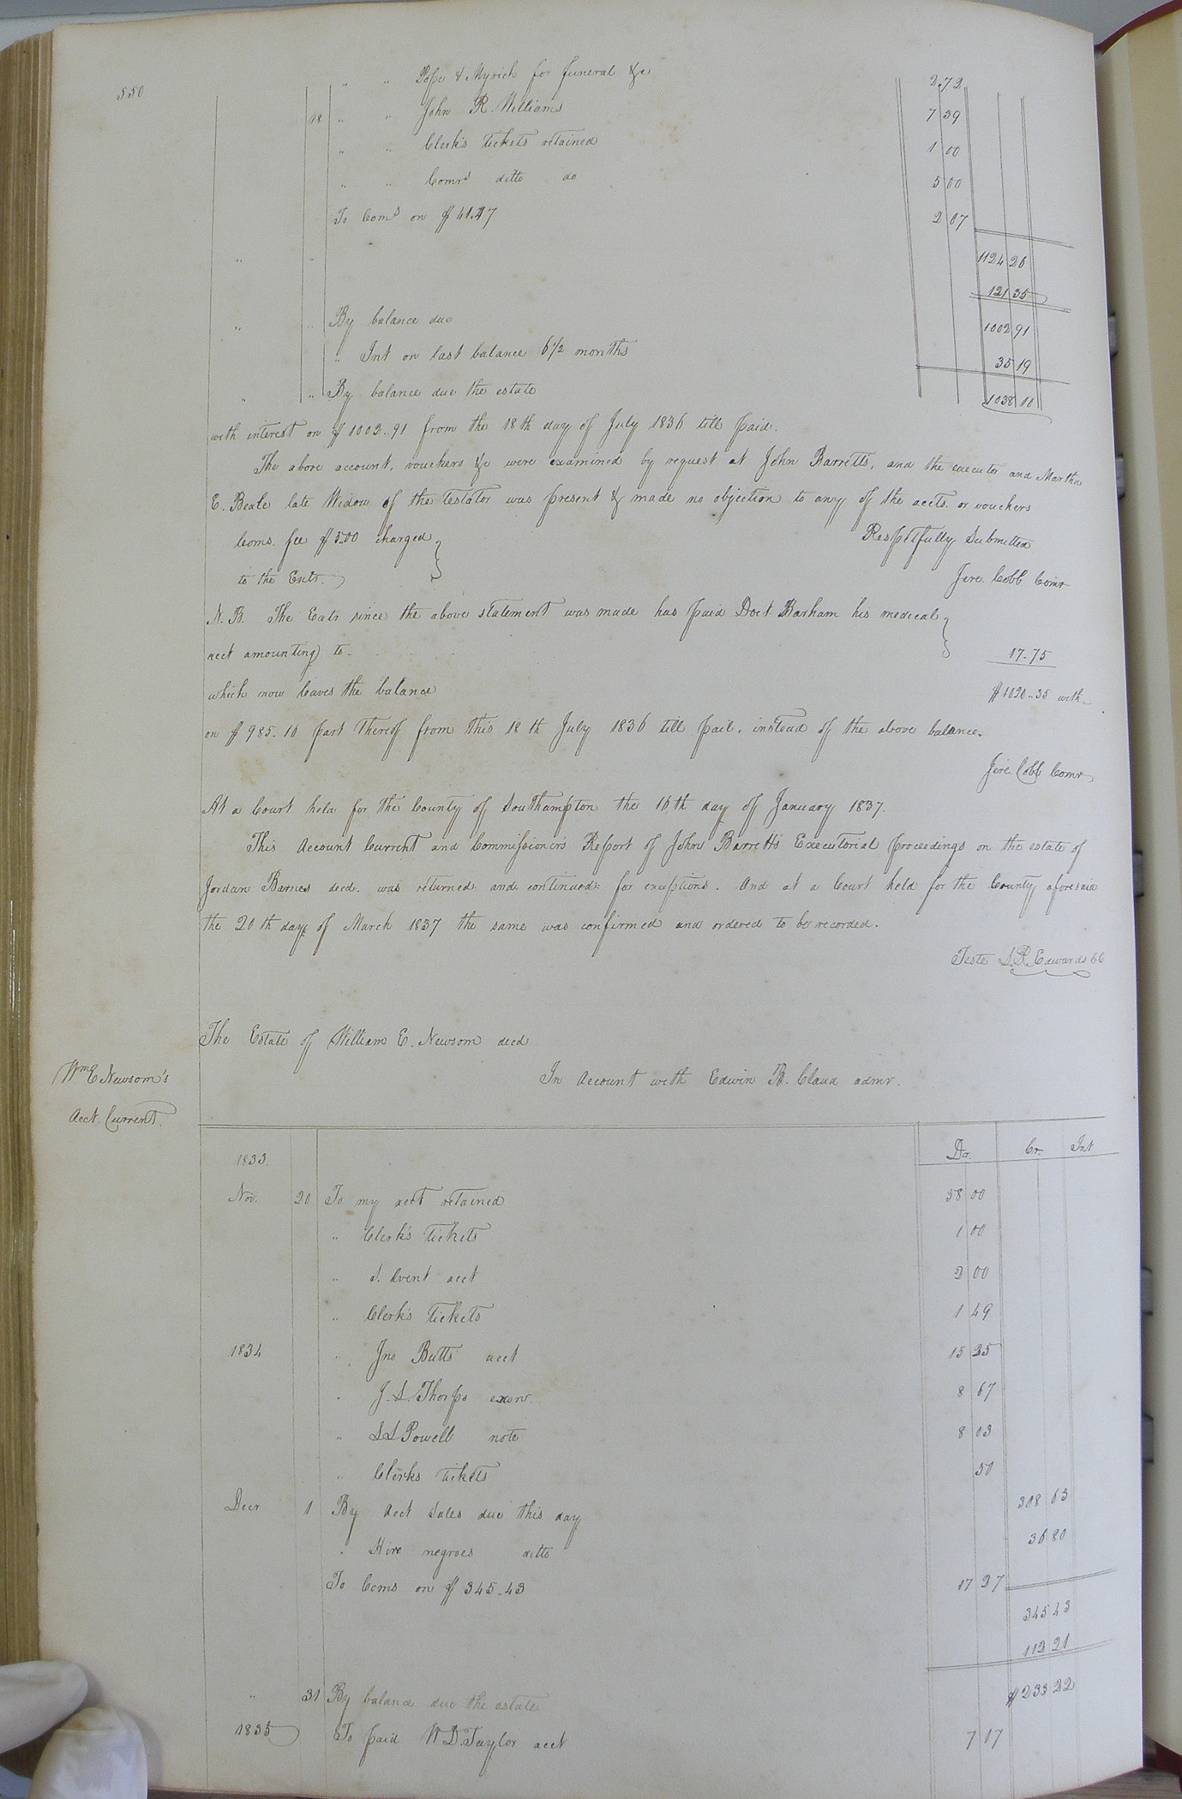 550
" " Pope & Myrick for funeral &c 2 72
18 " " John R. Williams 7 39
" " Clerk's tickets retained 1 00
" " Comrs ditto do 5 00
To Coms on $ 41.47 2 07
" " 1124 26
121 35
" " By balance due 1002 91
" Int on last balance 6 1/2 months 35 19
" " By balance due the estate 1038 10
with interest on $ 1002..91 from the 18th day of July 1836 till paid.
The above account, vouchers &c were examined by request at John Barretts, and the executor and Martha
E. Beale late Widow of the testator was present & made no objection to any of the accts. or vouchers
Coms. fee $ 5.00 charged Respectfully Submitted
to the Exetr. Jere. Cobb Comr
N. B. The Exetr since the above statement was made has paid Doct Barham his medical
acct amounting to 17.75
which now leaves the balance $ 1020..35 with
on $ 985.16 part thereof from this 18th July 1836 till paid, instead of the above balance.
Jere. Cobb Comr
At a Court held for the County of Southampton the 16th day of January 1837.
This Account Current and Commissioner's Report of John Barretts Executorial proceedings on the estate of
Jordan Barnes decd. was returned and continued for exceptions. And at a Court held for the County aforesaid
the 20th day of March 1837 the same was confirmed and ordered to be recorded.
Teste L. R. Edwards CC
The Estate of William E. Newsom decd
Wm E Newsom's
In Account with Edwin B. Claud admr.
Acct. Current.
1833. Dr. Cr. Int
Nov. 20 To my acct retained 58 00
" Clerk's tickets 1 00
" acct 2 00
" Clerk's tickets 1 49
1834 " Jno Butts acct 15 25
" J. S. Thorps exor. 8 67
" Powell note 8 03
" Clerks tickets 50
Decr 1 By acct sales due this day 308 63
" Hire negroes ditto 36 80
To Coms on $ 345..43 17 27
345 43
112 21
" 31 By balance due the estate $ 233 22
1835 To paid W D. Taylor acct 7 17